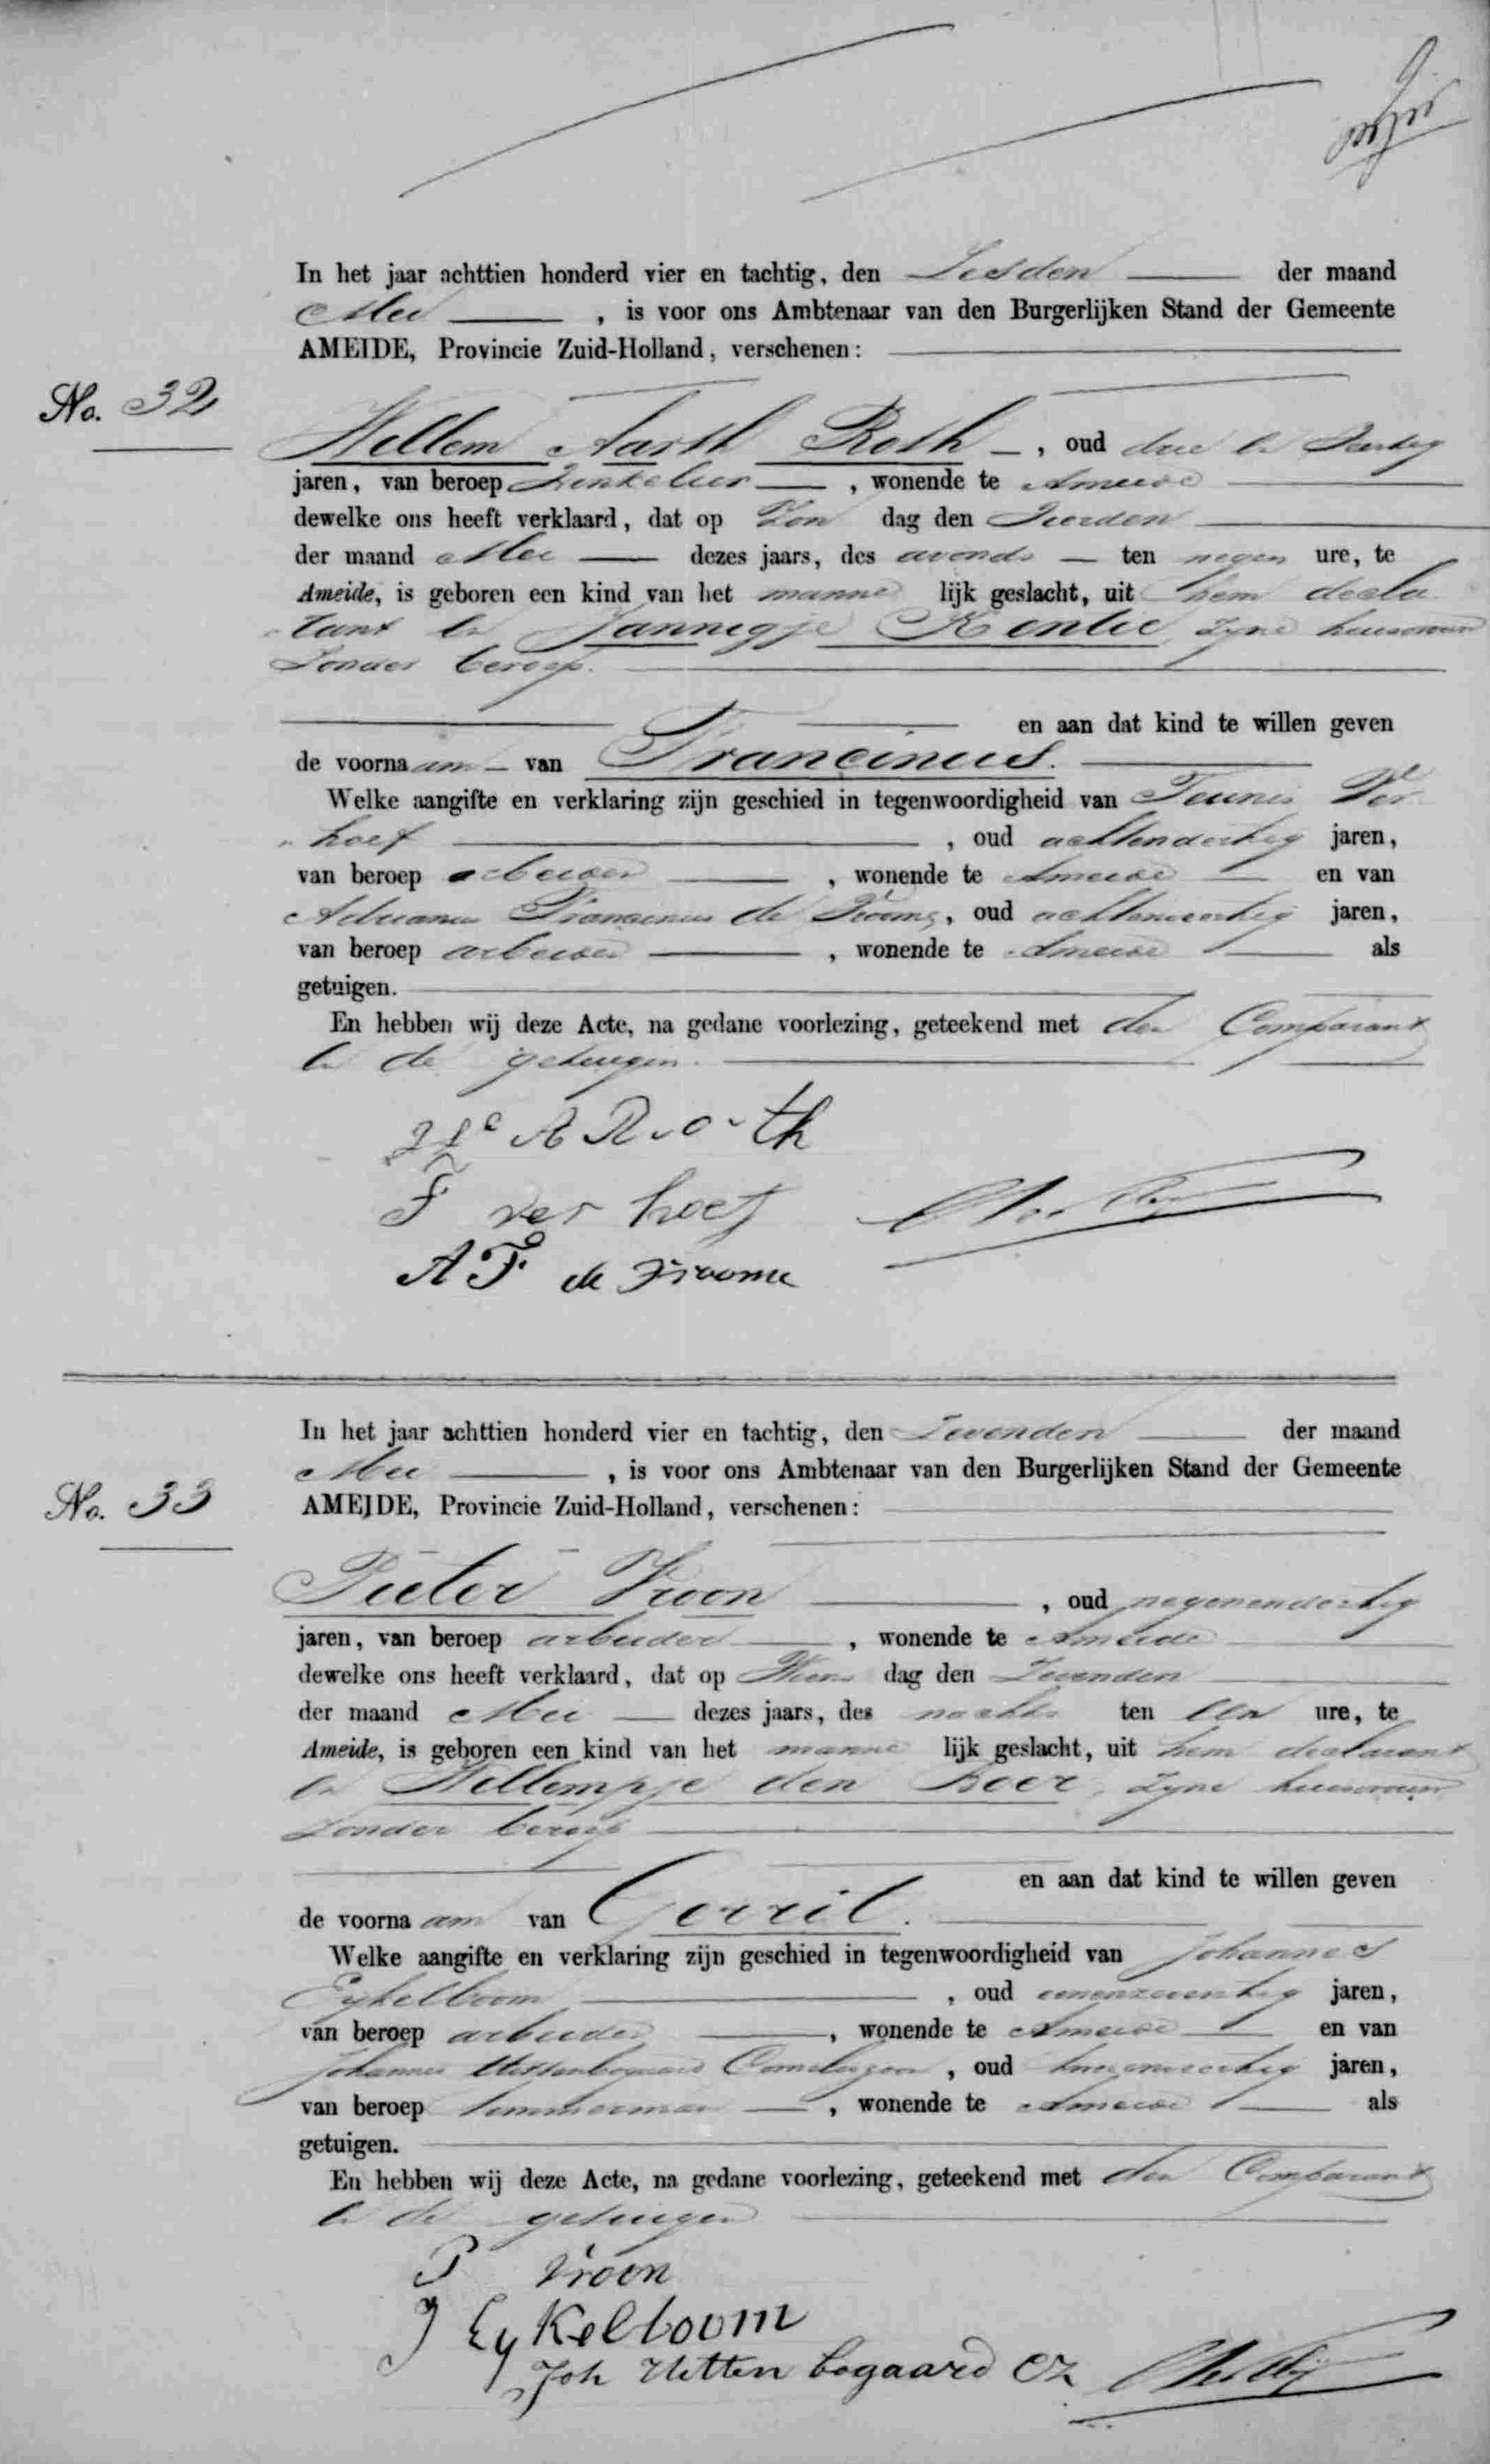 In het jaar achttien honderd vier en tachtig, den Zesden der maand
Mei, is voor ons Ambtenaar van den Burgerlijken Stand der Gemeente
AMEIDE, Provincie Zuid-Holland, verschenen:
No. 32
Willem Aarth Roth, oud drie en
jaren, van beroep Winkelier, wonende te Ameide
dewelke ons heeft verklaard, dat op Zon dag den Vierden
der maand Mei dezes jaars, des avonds ten negen ure, te
Ameide, is geboren een kind van het manne lijk geslacht, uit hem decla
rant en Jannegje Kentie, zijne huisvrouw
Zonder beroep.
en aan dat kind te willen geven
de voorna am van Francinus.
Welke aangifte en verklaring zijn geschied in tegenwoordigheid van Teunis Ver
hoef, oud achtendertig jaren,
van beroep arbeider, wonende te Ameide en van
Adrianus Francinus de Vroome, oud achtenveertig jaren,
van beroep arbeider, wonende te Ameide als
getuigen.
En hebben wij deze Acte, na gedane voorlezing, geteekend met den Comparant
en de getuigen.
A Roth
T ver hoef
A F de Vroome
In het jaar achttien honderd vier en tachtig, den Zevenden der maand
Mei, is voor ons Ambtenaar van den Burgerlijken Stand der Gemeente
AMEIDE, Provincie Zuid-Holland, verschenen:
No. 33
Pieter Vroon, oud negenendertig
jaren, van beroep arbeider, wonende te Ameide
dewelke ons heeft verklaard, dat op Woens dag den Zevenden
der maand Mei dezes jaars, des nachts ten een ure, te
Ameide, is geboren een kind van het manne lijk geslacht, uit hem declarant
en Willempje den Boer, zijne huisvrouw
Zonder beroep
en aan dat kind te willen geven
de voorna am van Gerrit.
Welke aangifte en verklaring zijn geschied in tegenwoordigheid van Johannes
Eykelboom, oud eenenzeventig jaren,
van beroep arbeider, wonende te Ameide en van
Johannes Uittenbogaard Corneliszoon, oud tweeenveertig jaren,
van beroep timmerman, wonende te Ameide als
getuigen.
En hebben wij deze Acte, na gedane voorlezing, geteekend met den Comparant
en de getuigen
P Vroon
J Eykelboom
Joh Uitten bogaard CZ